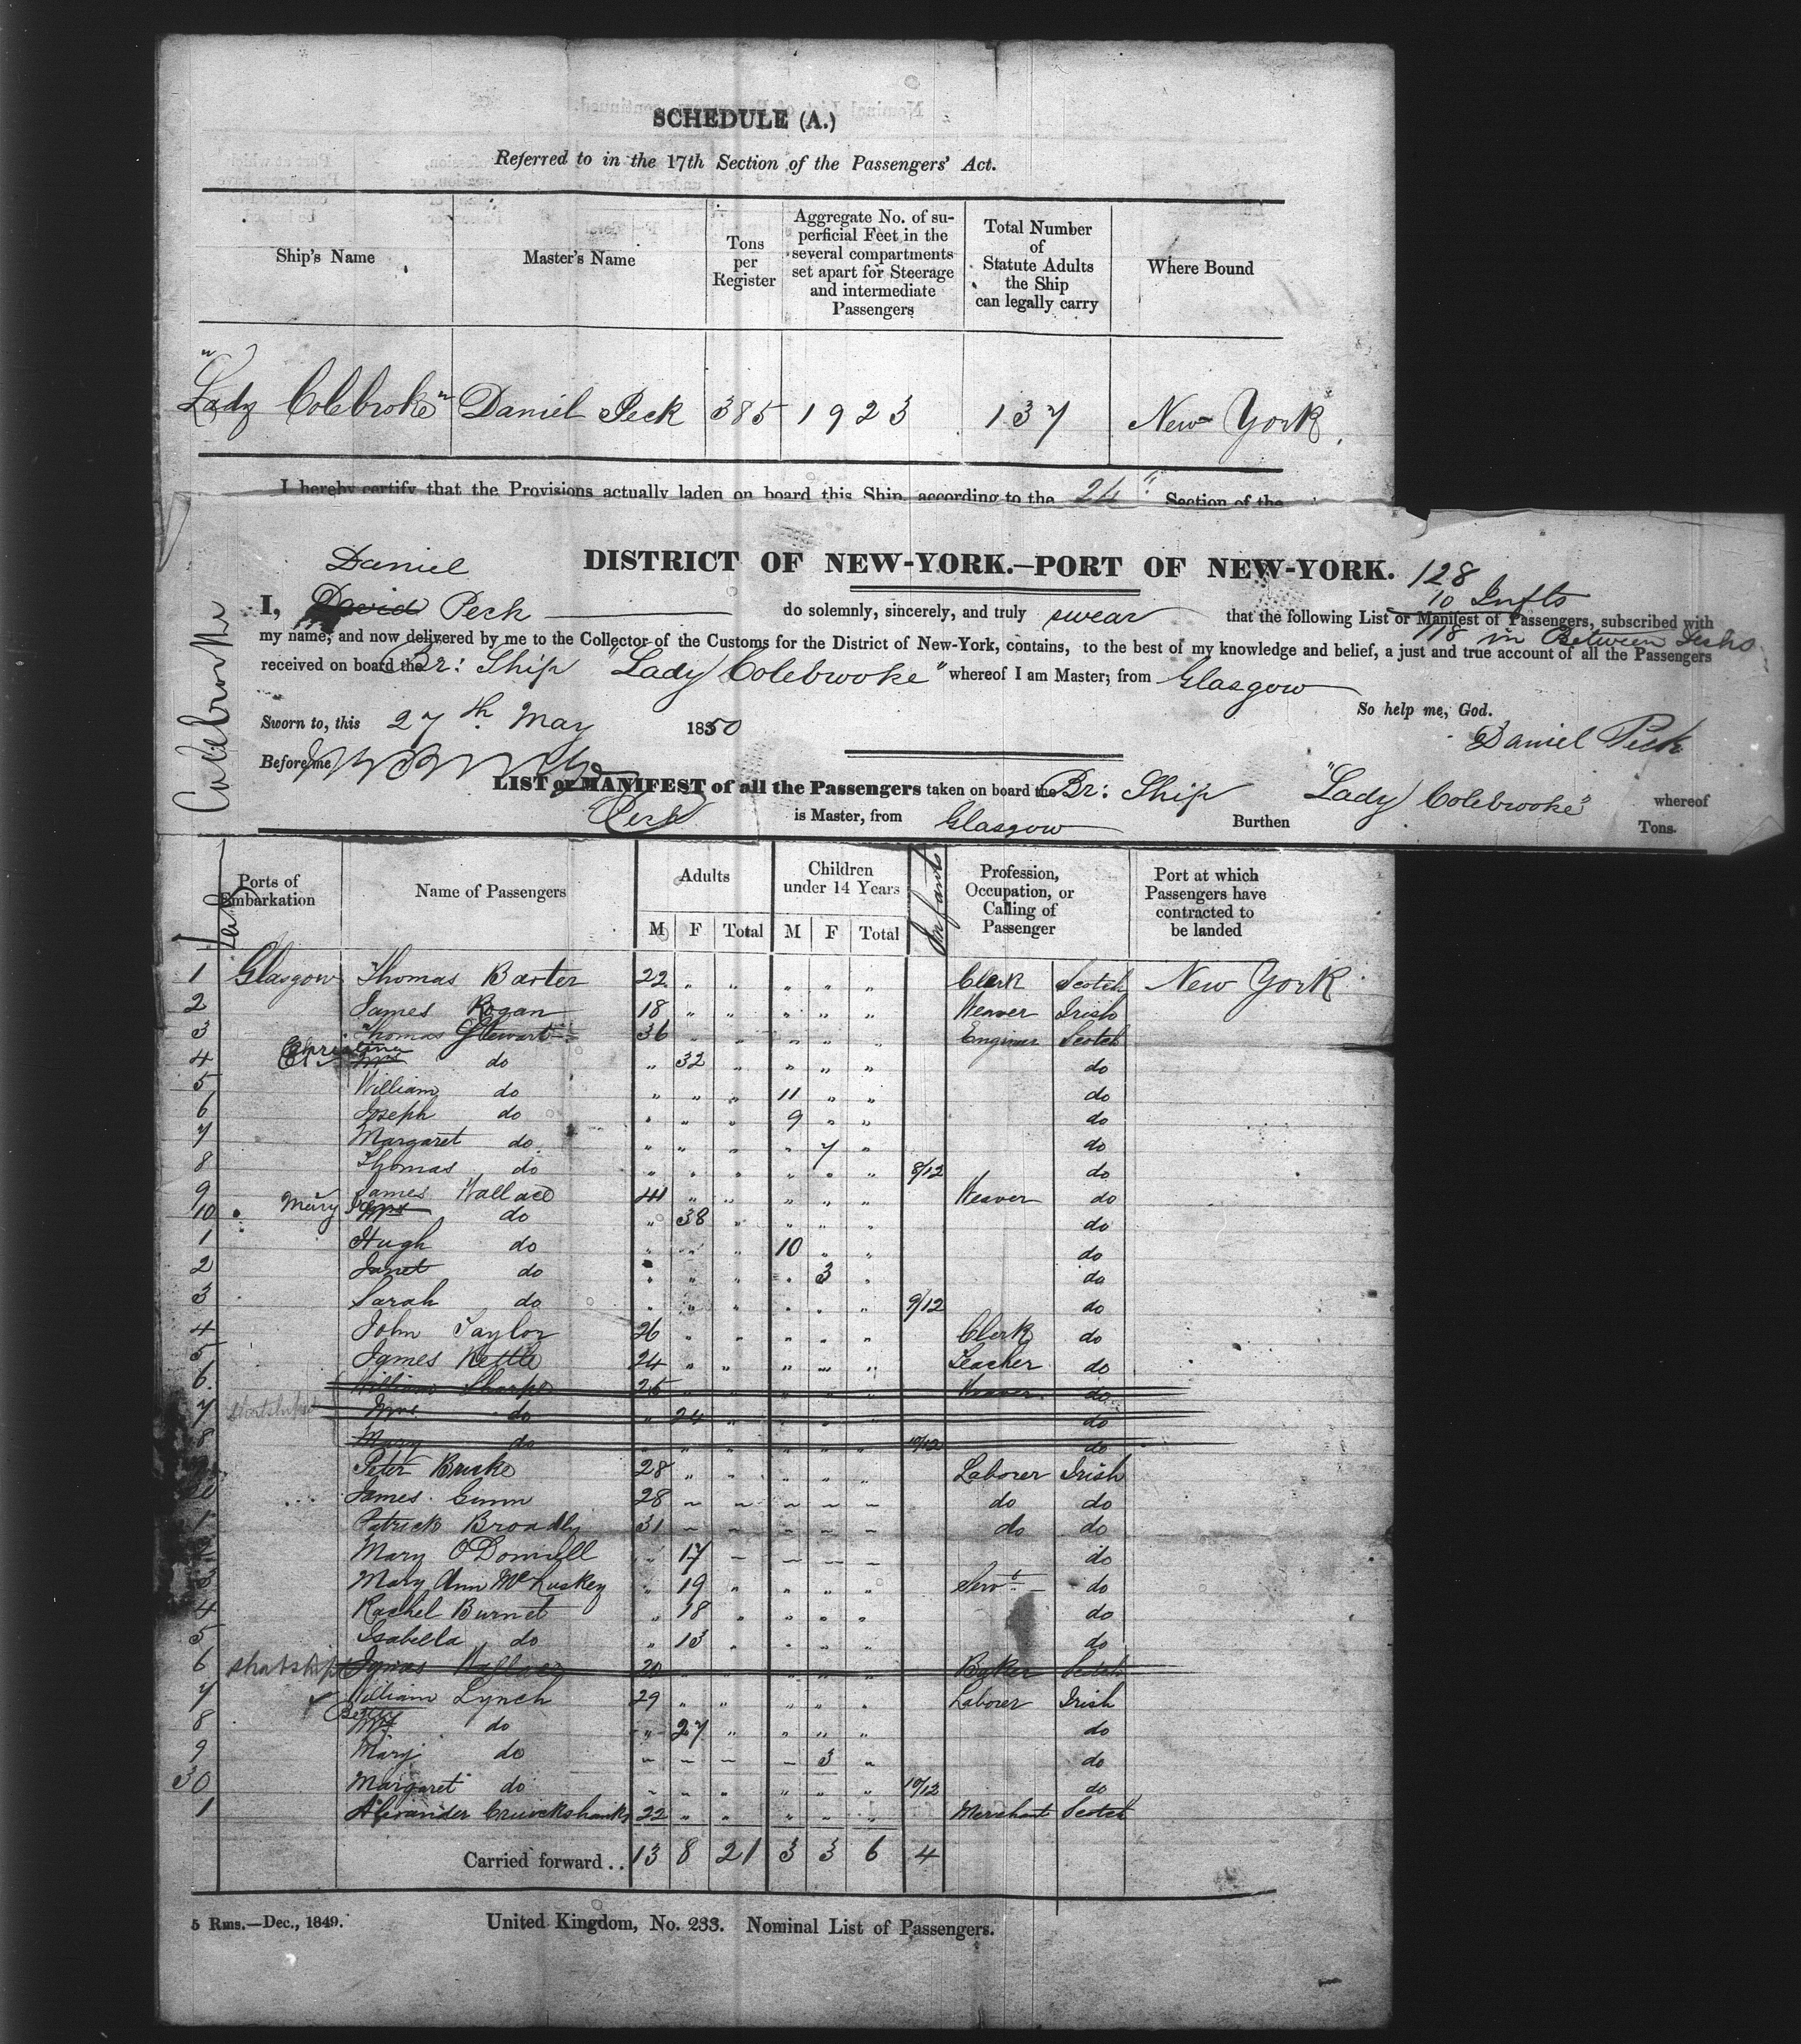 SCHEDULE (A.)
Referred to in the 17th Section of the Passengers' Act.
Ship's Name Master's Name Tons per Register Aggregate No. of superficial Feet in the several compartments set apart for Steerage and intermediate Passengers Total Number of Statute Adults the Ship can legally carry Where Bound
"Lady Colebroke" Daniel Peck 385 1923 137 New York.
I hereby certify that the Provisions actually laden on board this Ship, according to the 24" Section of the
DISTRICT OF NEW-YORK.—PORT OF NEW-YORK. 128
Daniel
10 Infts
I, David Peck do solemnly, sincerely, and truly swear that the following List or Manifest of Passengers, subscribed with
118 in Between Decks
my name, and now delivered by me to the Collector of the Customs for the District of New-York, contains, to the best of my knowledge and belief, a just and true account of all the Passengers
received on board the Br: Ship "Lady Colebrooke" whereof I am Master, from Glasgow
So help me, God.
Sworn to, this 27th May 1850
Daniel Peck
Before me
LIST or MANIFEST of all the Passengers taken on board the Br: Ship "Lady Colebrooke" whereof
Peck is Master, from Glasgow Burthen Tons.
Lady Colebrooke
Ports of Embarkation Name of Passengers Adults Children under 14 Years Infants Profession, Occupation, or Calling of Passenger Port at which Passengers have contracted to be landed
M F Total M F Total
1 Glasgow Thomas Baxter 22 " " " " " Clerk Scotch New York
2 James Rogan 18 " " " " " Weaver Irish
3 Thomas Stewart 36 " " " " " Engineer Scotch
4 Christina Mrs do " 32 " " " " do
5 William do " " " 11 " " do
6 Joseph do " " " 9 " " do
7 Margaret do " " " " 7 " do
8 Thomas do " " " " " " 8/12 do
9 James Wallace 41 " " " " " Weaver do
10 Mary Mrs do " 38 " " " " do
1 Hugh do " " " 10 " " do
2 Janet do " " " " 3 " do
3 Sarah do " " " " " " 9/12 do
4 John Taylor 26 " " " " " Clerk do
5 James Kettle 24 " " " " " Teacher do
6 William Sharpe 25 " " " " " Weaver do
7 shortshipped Mrs do " 24 " " " " do
8 Mary do " " " " " " 10/12 do
Peter Burke 28 " " " " " Laborer Irish
20 James Gunn 28 " " " " " do do
1 Patrick Broadly 31 " " " " " do do
2 Mary O'Donnell " 17 " " " " do
3 Mary Ann McLuskey " 19 " " " " Servt do
4 Rachel Burnet " 18 " " " " do
5 Isabella do " 13 " " " " do
6 shortship James Wallace 20 " " " " " Baker Scotch
7 William Lynch 29 " " " " " Laborer Irish
8 Betty Mrs do " 27 " " " " do
9 Mary do " " " " 3 " do
30 Margaret do " " " " " " 10/12 do
1 Alexander Cruickshanks 22 " " " " " Merchant Scotch
Carried forward.. 13 8 21 3 3 6 4
5 Rms.—Dec., 1849. United Kingdom, No. 233. Nominal List of Passengers.